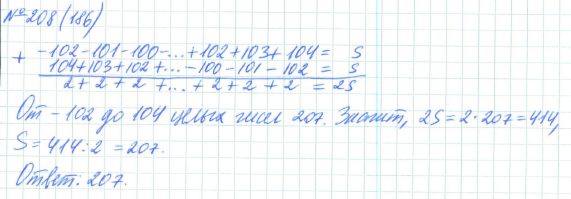 № 208 (186)
-102-101-100-...+102+103+104= S
+ 104+103+102+...-100-101-102 = S
2+2+2+...+2+2+2 = 2S
От -102 до 104 целых чисел 207. Значит, 2S=2·207=414,
S=414:2=207.
Ответ: 207.